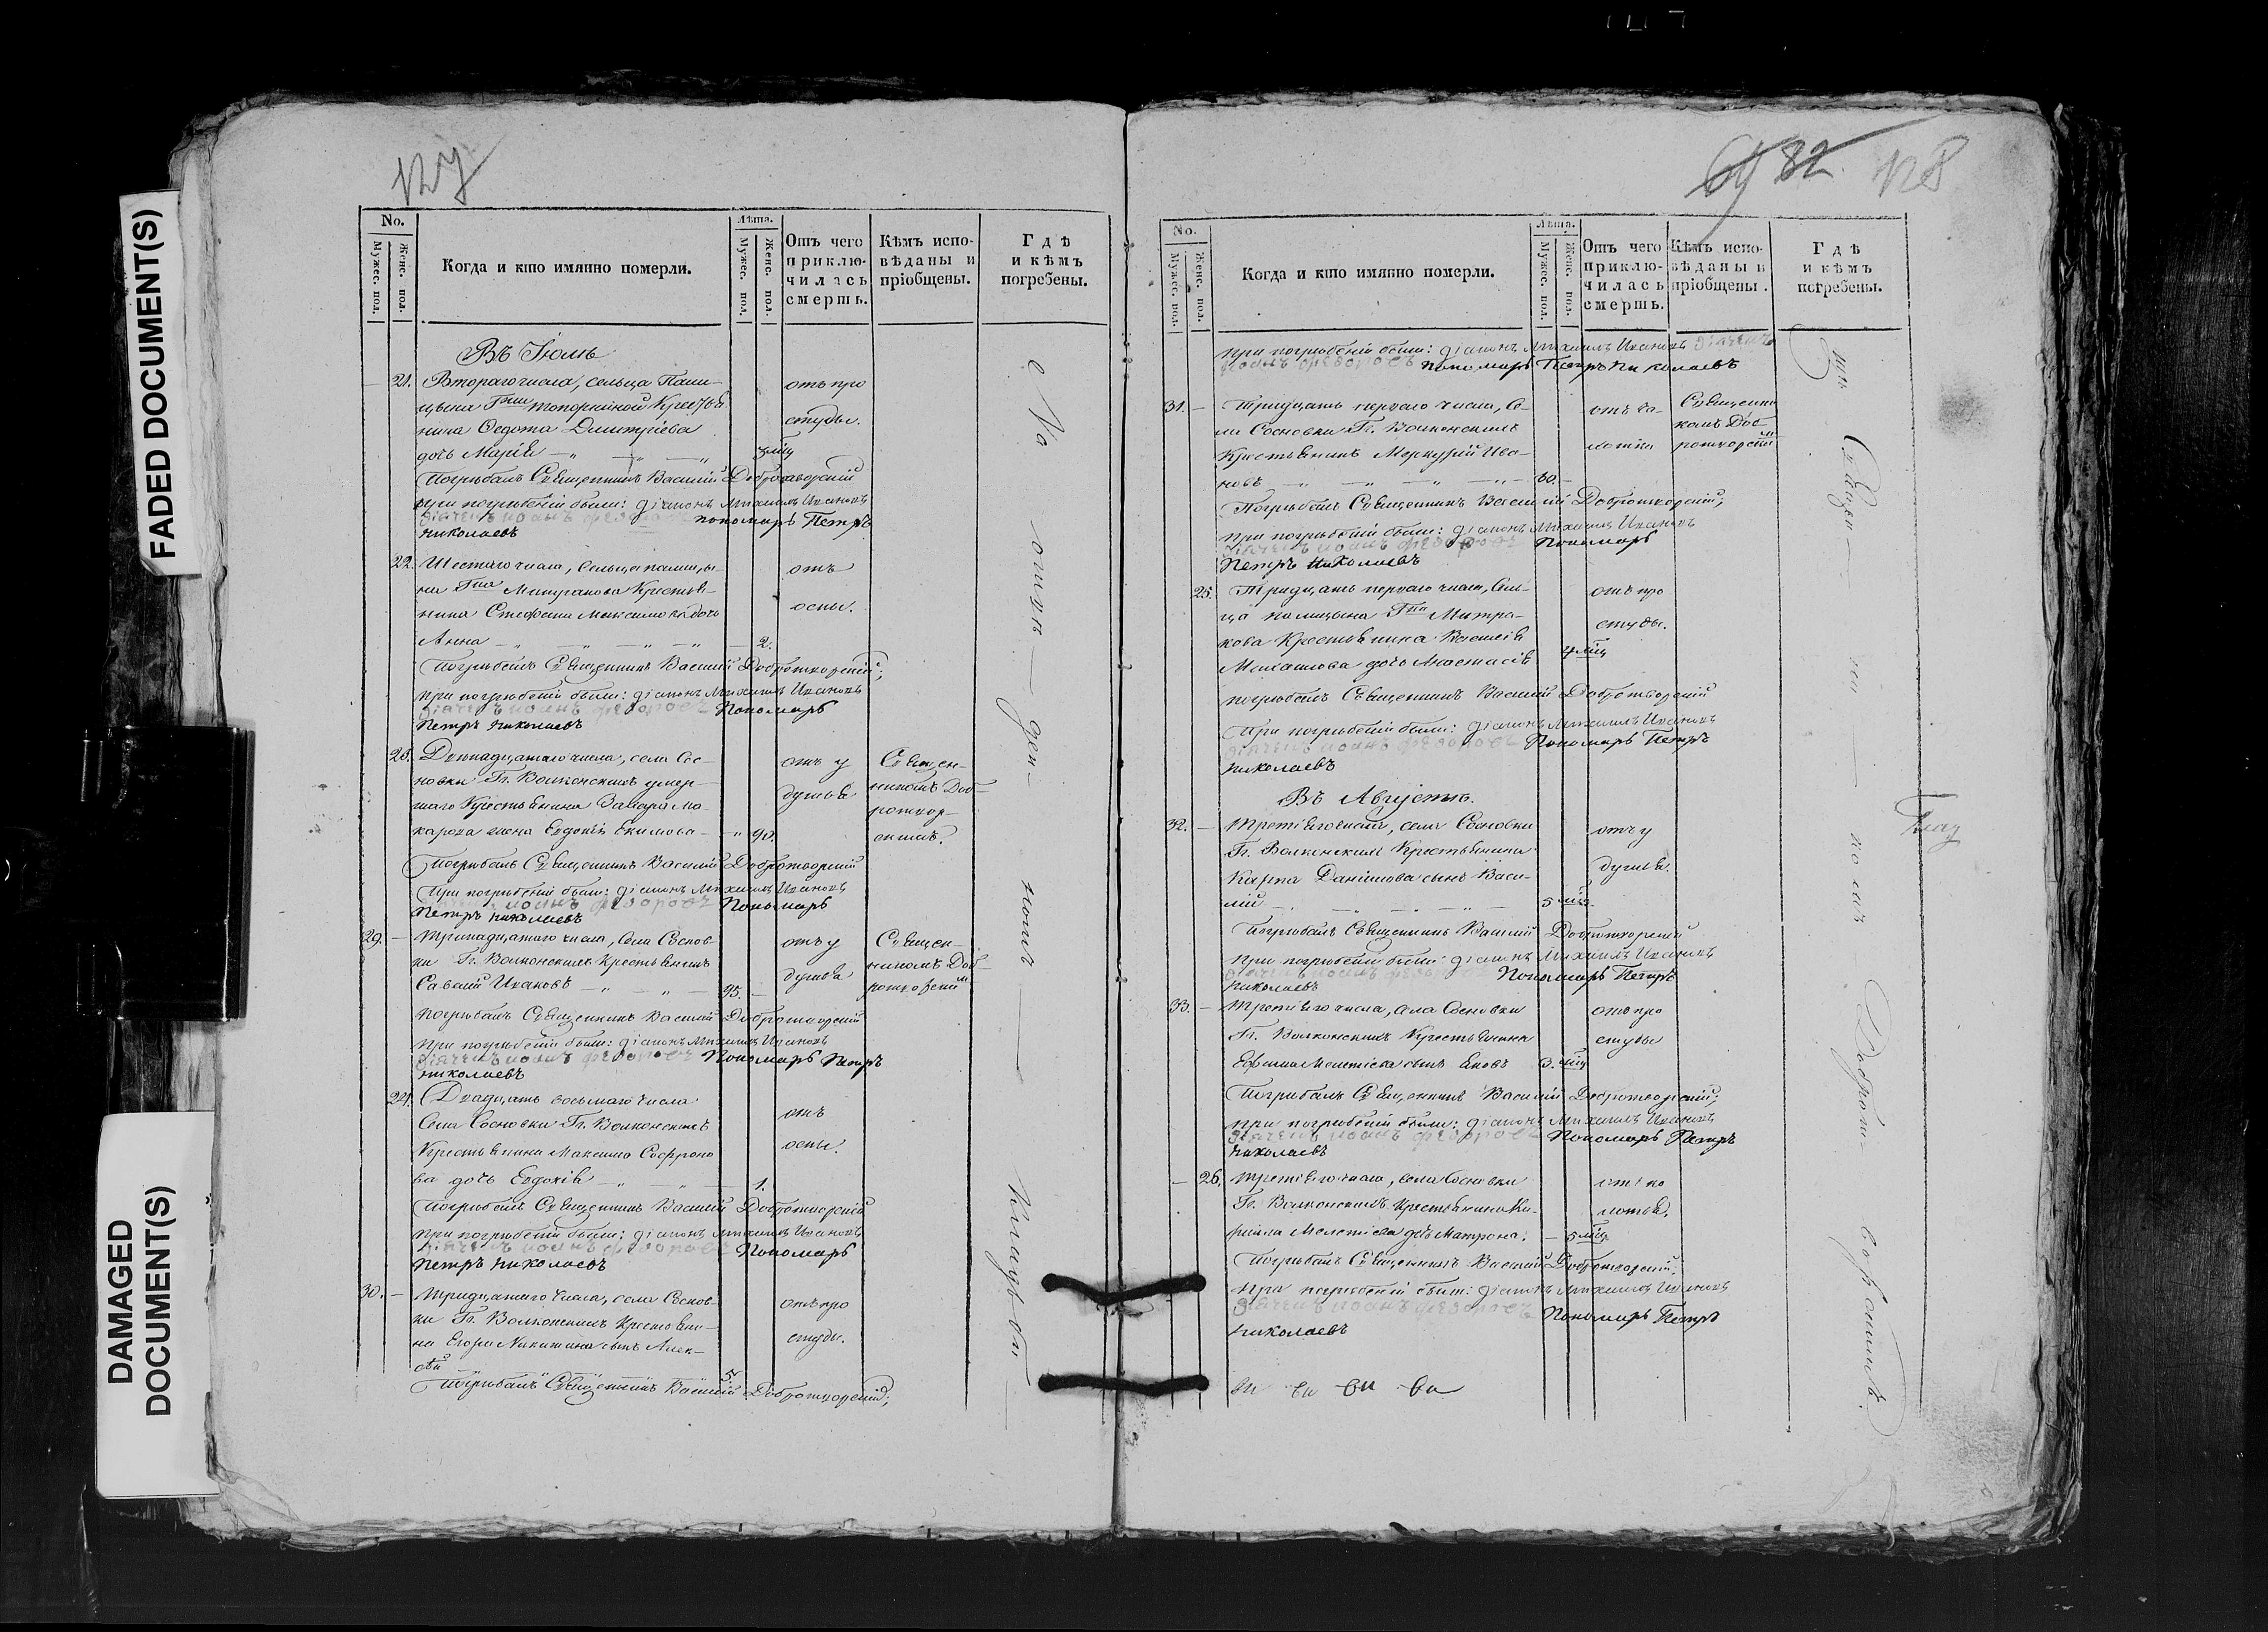 FADED DOCUMENT(S)
DAMAGED
DOCUMENT(S)
127
No.
Мужес. пол.
Женс. пол.
Когда и кто имянно померли.
Лѣта.
Мужес. пол.
Женс. пол.
Отъ чего
приклю-
чилась
смерть.
Кѣмъ испо-
вѣданы и
пріобщены.
Гдѣ
и кѣмъ
погребены.
Въ Іюлѣ
21. Втораго числа, сельца
крестья
нина Ѳедота Димитріева
дочь Марія
отъ про
студы.
Погребалъ Священникъ Василій Добротворскій
при погребеніи были: діаконъ Михаилъ Ивановъ
дьячекъ Іоаннъ Федоровъ пономарь Петръ
Николаевъ
22. Шестаго числа, сельца
на Митракова крестья-
нина Стефана Максимова дочь
Анна 2.
отъ
оспы.
Погребалъ Священникъ Василій Добротворскій;
при погребеніи были: діаконъ Михаилъ Ивановъ
дьячекъ Іоаннъ Федоровъ Пономарь
Петръ Николаевъ
23. числа, села Сос-
новки Гг. Волконскихъ умер-
шаго крестьянина Захара Ма-
карова жена Евдокія Екимова 90.
отъ у
душья
Священ-
никомъ Доб-
ротвор-
скимъ.
Погребалъ Священникъ Василій Добротворскій
При погребеніи были: діаконъ Михаилъ Ивановъ
дьячекъ Іоаннъ Федоровъ Пономарь
Петръ Николаевъ
29. Тринадцатаго числа, села Соснов-
ки Гг. Волконскихъ крестьянинъ
Савелій Ивановъ 95.
отъ у
душья
Священ-
никомъ Доб-
ротворским
Погребалъ Священникъ Василій Добротворскій
при погребеніи были: діаконъ Михаилъ Ивановъ
дьячекъ Іоаннъ Федоровъ Пономарь Петръ
Николаевъ
24. Двадцать восьмаго числа
Села Сосновки Гг. Волконскихъ
Крестьянина Максима Софроно
ва дочь Евдокія 1.
отъ
оспы.
Погребалъ Священникъ Василій Добротворскій
при погребеніи были: діаконъ Михаилъ Ивановъ
дьячекъ Іоаннъ Федоровъ Пономарь
Петръ Николаевъ
30. Тридцатаго числа, села Соснов-
ки Гг. Волконскихъ крестьяни-
на Егора Никитина сынъ Алек-
сѣй 5.
отъ про
студы.
Погребалъ Священникъ Василій Добротворскій;
На
отве
ден
номъ
кладбищ
69 82. 128
No.
Мужес. пол.
Женс. пол.
Когда и кто имянно померли.
Лѣта.
Мужес. пол.
Женс. пол.
Отъ чего
приклю-
чилась
смерть.
Кѣмъ испо-
вѣданы и
пріобщены.
Гдѣ
и кѣмъ
погребены.
при погребеніи были: діаконъ Михаилъ Ивановъ дьячекъ
Іоаннъ Федоровъ пономарь Петръ Николаевъ
31. Тридцать перваго числа, Се-
ла Сосновки Гг. Волконскихъ
крестьянинъ Меркурій Ива-
новъ 60.
Священни
комъ Доб-
ротворским
Погребалъ Священникъ Василій Добротворскій;
при погребеніи были: діаконъ Михаилъ Ивановъ
дьячекъ Іоаннъ Федоровъ Пономарь
Петръ Николаевъ
25. Тридцать перваго числа, Сель-
ца Митра-
кова Крестьянина Василія
Михайлова дочь Анастасія 4 мц
отъ про
студы.
погребалъ Священникъ Василій Добротворскій
При погребеніи были: діаконъ Михаилъ Ивановъ
дьячекъ Іоаннъ Федоровъ Пономарь Петръ
Николаевъ
Въ Августѣ.
32. Третьяго числа, села Сосновки
Гг. Волконскихъ Крестьянина
Карпа Даніилова сынъ Васи-
лій 5 мц.
отъ у
душья.
Погребалъ Священникъ Василій Добротворскій
при погребеніи были: діаконъ Михаилъ Ивановъ
дьячекъ Іоаннъ Федоровъ Пономарь Петръ
Николаевъ
33. Третьяго числа, села Сосновки
Гг. Волконскихъ Крестьянина
Ефима Мелетіева сынъ Яковъ 3. мц
отъ про
студы
Погребалъ Священникъ Василій Добротворскій;
при погребеніи были: діаконъ Михаилъ Ивановъ
дьячекъ Іоаннъ Федоровъ Пономарь Петръ
Николаевъ
26. Третьяго числа, села Сосновки
Гг. Волконскихъ крестьянина Ки-
рилла Мелетіева дочь Матрона. 5 мц
Погребалъ Священникъ Василій Добротворскій;
при погребеніи были: діаконъ Михаилъ Ивановъ
дьячекъ Іоаннъ Федоровъ Пономарь Петръ
Николаевъ
Священ
ни
комъ
Доброт
ворскимъ.